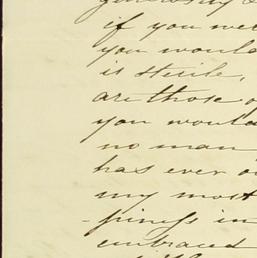 if you wer
you would
is sterile,
are those o
you would
no man
has ever o
my most
-pings in
embraced